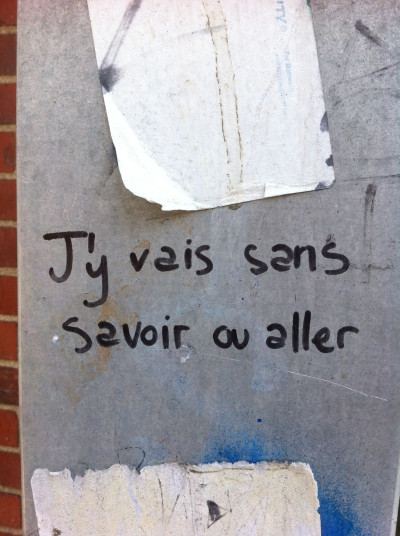 J'y vais sans
savoir ou aller